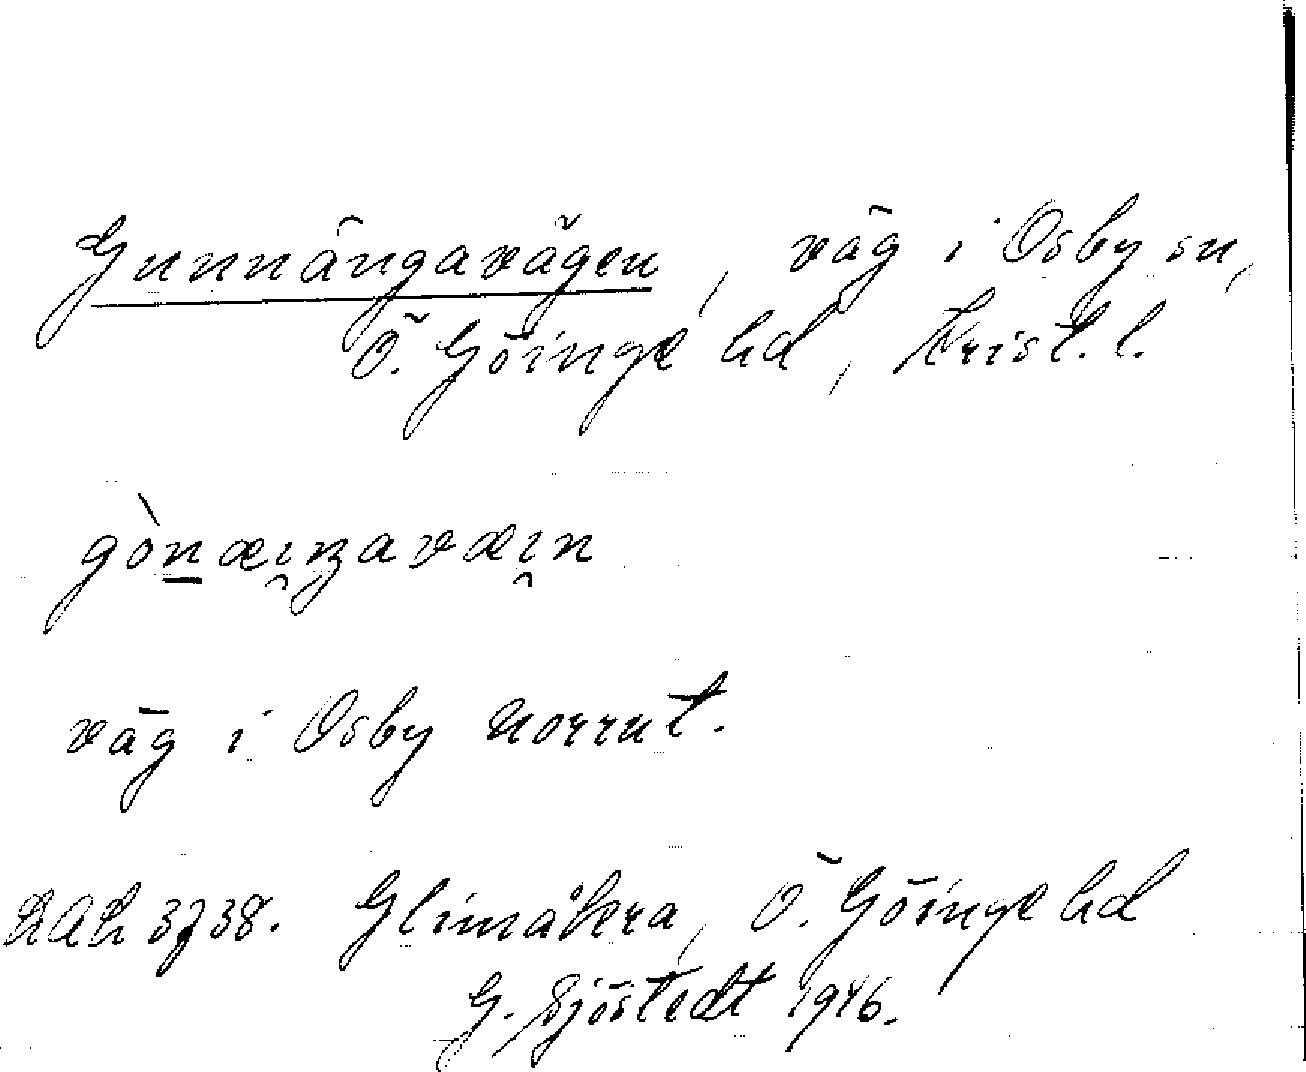 Gunnängavägen, väg i Osby sn,
Ö. Göinge hd, Krist. l.
gònæi̯ŋavæi̯n
väg i Osby norrut.
DAL 3738. Glimåkra, Ö. Göinge hd
G. Sjöstedt 1946.